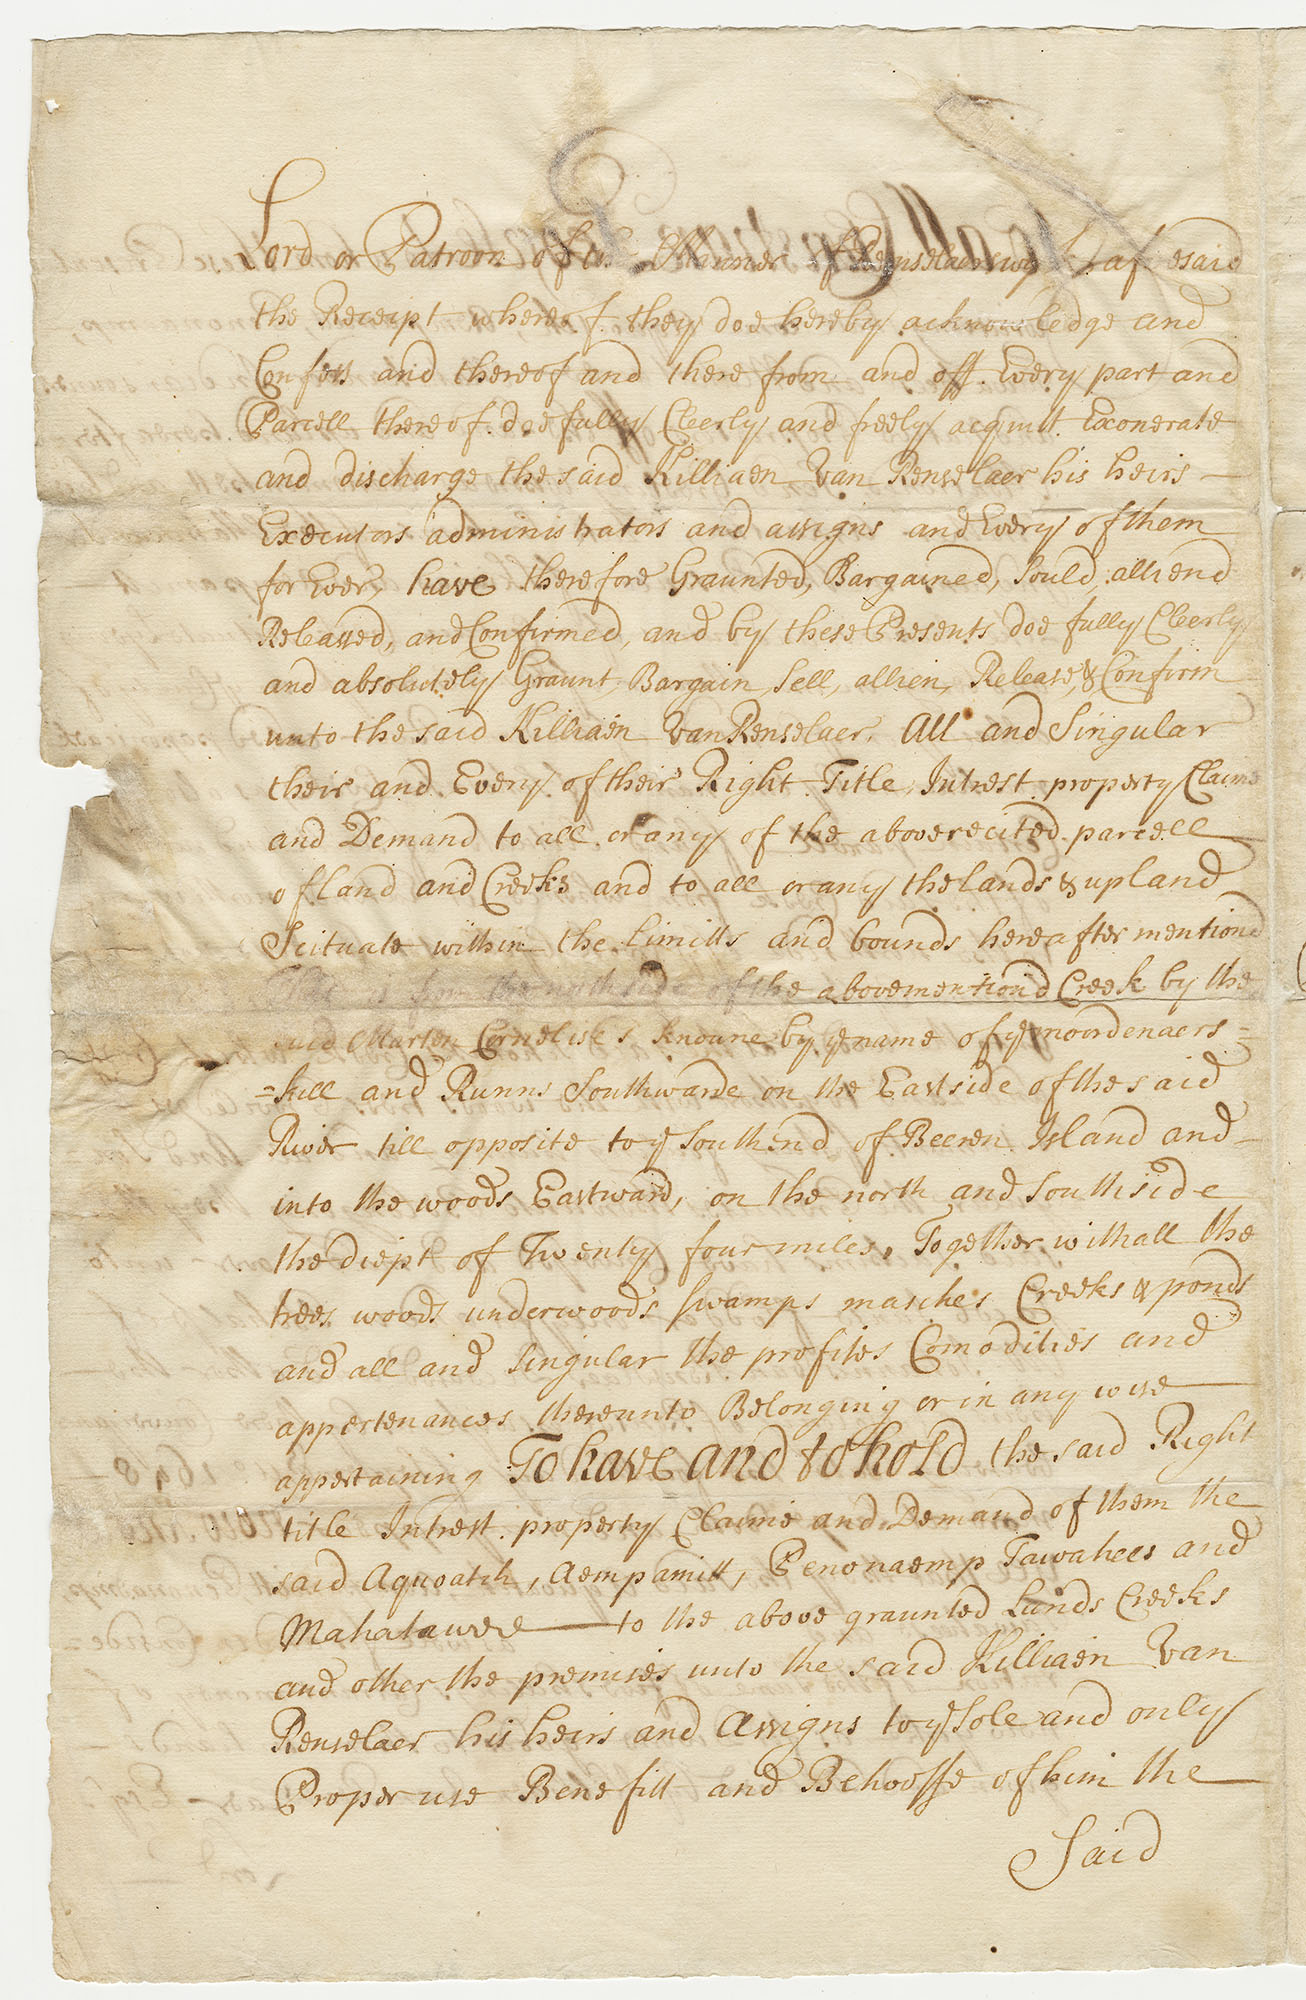 Lord or Patroon of the Mannor of Renselaerswyk aforesaid
the Receipt whereof they doe hereby acknowledge and
Confess and thereof and there from and off Every part and
Parcell thereof doe fully Cleerly and freely acquitt Exonerate
and discharge the said Killiaen Van Renselaer his heirs
Executors administrators and assigns and Every of them
for Ever, have therefore Graunted, Bargained, Sould, aliend
Releassed, and Confirmed, and by these Presents doe fully Cleerly
and absolutely Graunt, Bargain, Sell, allien, Release, & Confirm
unto the said Killiaen Van Renselaer, All and Singular
their and Every of their Right Title, Intrest property Claime
and Demand to all or any of the above recited parcell
of land and Creeks and to all or any the lands & upland
Scituate within the limitts and bounds hereafter mentiond
is from the north side of the abovementiond Creek by the
said Marten Cornelise's knowne by ye name of ye noordenaers =
= kill and Runns Southwarde on the Eastside of the said
River till opposite to ye South End of Beeren Island and
into the woods Eastward, on the north and Southside
the diept of Twenty four miles, Together with all the
trees woods underwoods swamps mashes Creeks & ponds
and all and Singular the profites Comodities and
appertenances thereunto Belonging or in any wise
appertaining To have and to hold the said Right
title Intrest property Claime and Demand of them the
said Aquoatch, Aempamitt, Penonaemp Tawahees and
Mahatawee to the above graunted Lands Creeks
and other the premises unto the said Killiaen Van
Renselaer his heirs and Assigns to ye Sole and only
Proper use Benefitt and Behooffe of him the
Said